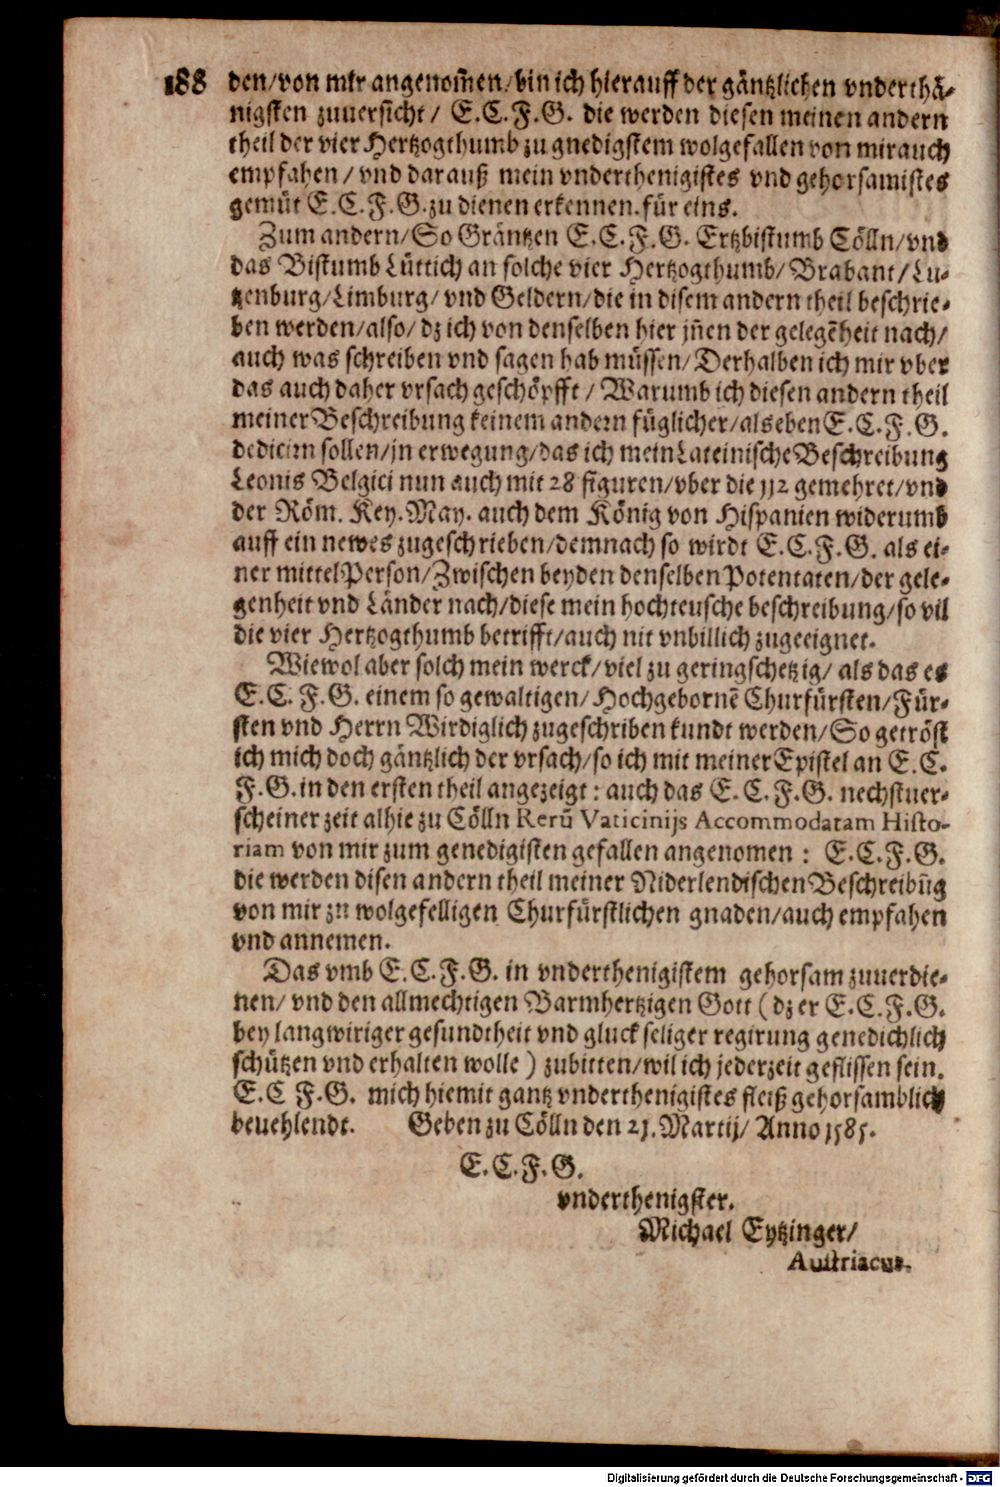 188 den/von mir angenom̃en/bin ich hierauff der gäntzlichen vnderthä-
nigsten zuuersicht/ E.C.F.G. die werden diesen meinen andern
theil der vier Hertzogthumb zu gnedigstem wolgefallen von mir auch
empfahen/ vnd darauß mein vnderthenigistes vnd gehorsamistes
gemüt E.C.F.G. zu dienen erkennen. für eins.
Zum andern/So Gräntzen E.C.F.G. Ertzbistumb Cölln/vnd
das Bistumb Lüttich an solche vier Hertzogthumb/Brabant/Lu-
tzenburg/Limburg/vnd Geldern/die in disem andern theil beschrie-
ben werden/also/dz ich von denselben hier jñen der gelegẽheit nach/
auch was schreiben vnd sagen hab müssen/Derhalben ich mir vber
das auch daher vrsach geschöpfft/Warumb ich diesen andern theil
meiner Beschreibung keinem andern füglicher/als eben E.C.F.G.
dedicirn sollen/jn erwegung/das ich mein Lateinische Beschreibung
Leonis Belgici nun auch mit 28 figuren/vber die 112 gemehret/vnd
der Röm. Key. May. auch dem König von Hispanien widerumb
auff ein newes zugeschrieben/demnach so wirdt E.C.F.G. als ei-
ner mittel Person/Zwischen beyden denselben Potentaten/der gele-
genheit vnd Länder nach/diese mein hochteusche beschreibung/so vil
die vier Hertzogthumb betrifft/auch nit vnbillich zugeeignet.
Wiewol aber solch mein werck/viel zu geringschetzig/als das es
E.C.F.G. einem so gewaltigen/Hochgebornẽ Churfürsten/Für-
sten vnd Herrn Wirdiglich zugeschriben kundt werden/So getröst
ich mich doch gäntzlich der vrsach/so ich mit meiner Epistel an E.C.
F.G. in den ersten theil angezeigt: auch das E.C.F.G. nechstuer-
scheiner zeit alhie zu Cölln Rerũ Vaticinijs Accommodatam Histo-
riam von mir zum genedigisten gefallen angenomen: E.C.F.G.
die werden disen andern theil meiner Niderlendischen Beschreibũg
von mir zu wolgefelligen Churfürstlichen gnaden/auch empfahen
vnd annemen.
Das vmb E.C.F.G. in vnderthenigistem gehorsam zuuerdie-
nen/ vnd den allmechtigen Barmhertzigen Gott (dz er E.C.F.G.
bey langwiriger gesundtheit vnd gluckseliger regirung genedichlich
schützen vnd erhalten wolle) zubitten/wil ich jederzeit geflissen sein.
E.C F.G. mich hiemit gantz vnderthenigistes fleiß gehorsamblich
beuehlendt. Geben zu Cölln den 21. Martij/ Anno 1585.
E.C.F.G.
vnderthenigster.
Michael Eytzinger/
Austriacus.
Digitalisierung gefördert durch die Deutsche Forschungsgemeinschaft - DFG